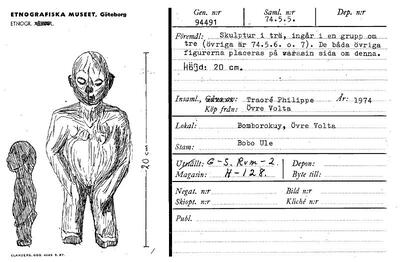 ETNOGRAFISKA MUSEET, Göteborg
ETNOGR.
20 cm
Gen. n:r
94491
Saml. n:r
74.5.5.
Dep. n:r
Föremål: Skulptur i trä, ingår i en grupp om
tre (övriga är 74.5.6. o. 7). De båda övriga
figurerna placeras på varsin sida om denna.
Höjd: 20 cm.
Insaml., Traoré Philippe År: 1974
Köp från: Övre Volta
Lokal: Bomborokuy, Övre Volta
Stam: Bobo Ule
Utställt: G-S. Rum-2. Depon:
Magasin: H-128. Byte till:
Negat. n:r Bild n:r
Skiopt. n:r Kliché n:r
Publ.